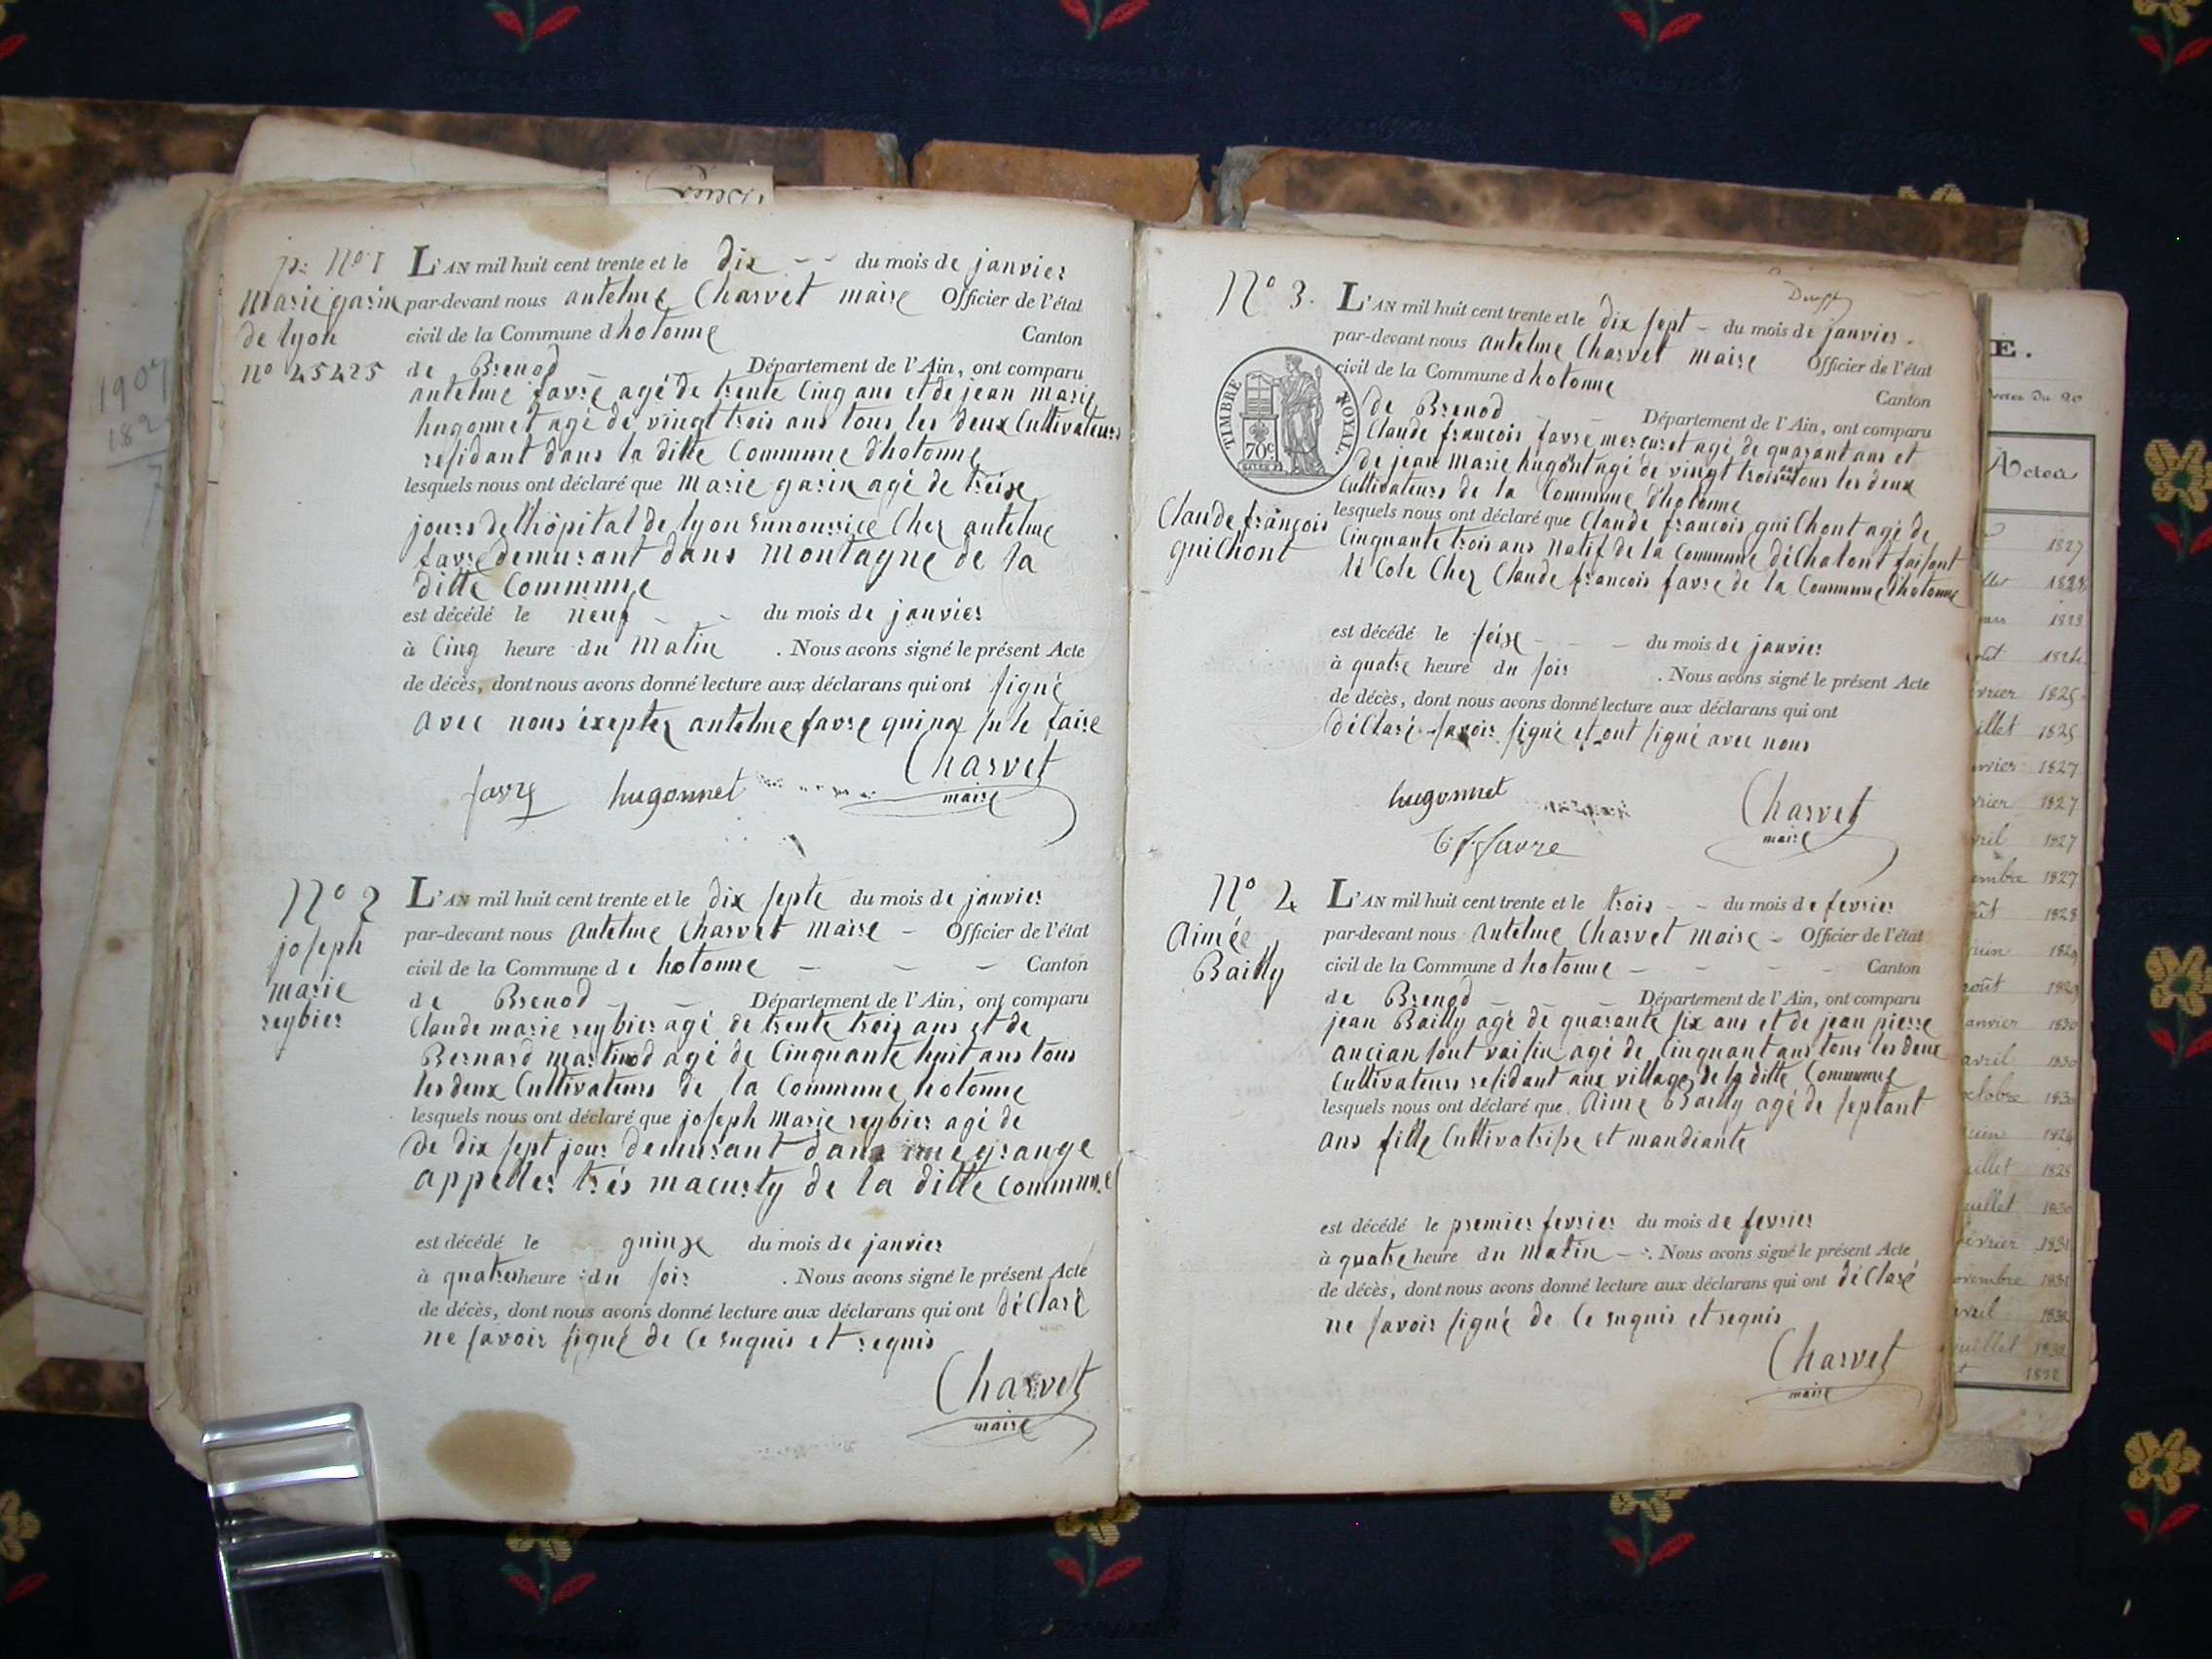 pr. N° 1
Marie garin
de lyon
n° 45425
L'AN mil huit cent trente et le dix du mois de janvier
par-devant nous antelme Charvet maire Officier de l'état
civil de la Commune d hotonne Canton
de Brenod Département de l'Ain, ont comparu
antelme favre agé de trente Cinq ans et de jean marie
hugonnet agé de vingt trois ans tous les deux Cultivateurs
residant dans la ditte Commune d'hotonne
lesquels nous ont déclaré que Marie garin agé de treize
jours de lhôpital de lyon ennourrice Chez antelme
favre demurant dans montagne de la
ditte Commune
est décédé le neuf du mois de janvier
à Cinq heure du matin . Nous avons signé le présent Acte
de décès, dont nous avons donné lecture aux déclarans qui ont signé
avec nous éxeptez antelme favre qui na su le faire
Charvet
favre hugonnet maire
N° 2
joseph
marie
reybier
L'AN mil huit cent trente et le dix septe du mois de janvier
par-devant nous antelme Charvet maire Officier de l'état
civil de la Commune d e hotonne Canton
de Brenod Département de l'Ain, ont comparu
Claude marie reybier agé de trente trois ans et de
Bernard martinod agé de Cinquante huit ans tous
les deux Cultivateurs de la Commune hotonne
lesquels nous ont déclaré que joseph marie reybier agé de
de dix sept jour demurant dans une grange
appeller trés macurty de la ditte commune
est décédé le quinze du mois de janvier
à quatre heure du soir . Nous avons signé le présent Acte
de décès, dont nous avons donné lecture aux déclarans qui ont déclaré
ne savoir signé de Ce enquis et requis
Charvet
maire
N° 3.
TIMBRE ROYAL
70c
Claude françois
guichont
L'AN mil huit cent trente et le dix sept du mois de janvier
par-devant nous antelme Charvet maire Officier de l'état
civil de la Commune d hotonne Canton
de Brenod Département de l'Ain, ont comparu
Claude francois favre mercuret agé de quarant ans et
de jean marie hugont agé de vingt trois ans tous les deux
Cultivateurs de la Commune d'hotonne
lesquels nous ont déclaré que Claude francois guichont agé de
Cinquante trois ans natif de la Commune de Chalont faisant
lé Cole Chez Claude francois favre de la Commune d'hotonne
est décédé le seize du mois de janvier
à quatre heure du soir . Nous avons signé le présent Acte
de décès, dont nous avons donné lecture aux déclarans qui ont
déclaré savoir signé et ont signé avec nous
hugonnet Charvet
maire
C f favre
N° 4
Aimée
Bailly
L'AN mil huit cent trente et le trois du mois de fevrier
par-devant nous antelme Charvet maire Officier de l'état
civil de la Commune d hotonne Canton
de Brenod Département de l'Ain, ont comparu
jean Bailly agé de quarante six ans et de jean pierre
ancian sont voisin agé de Cinquant ans tous les deux
Cultivateurs residant aux village de la ditte Commune
lesquels nous ont déclaré que Aime Bailly agé de septant
ans fille Cultivatrise et mandiante
est décédé le premier fevrier du mois de fevrier
à quatre heure du matin . Nous avons signé le présent Acte
de décès, dont nous avons donné lecture aux déclarans qui ont déclaré
ne savoir signé de Ce enquis et requis
Charvet
maire
E.
Actes
1827
1828
1825
1825
vrier 1827
1827
vril 1827
embre 1827
1828
juin
août
janvier 1830
avril 1830
octobre 1830
juillet
juillet 1830
février 1831
novembre 1831
avril
juillet 1832
1832